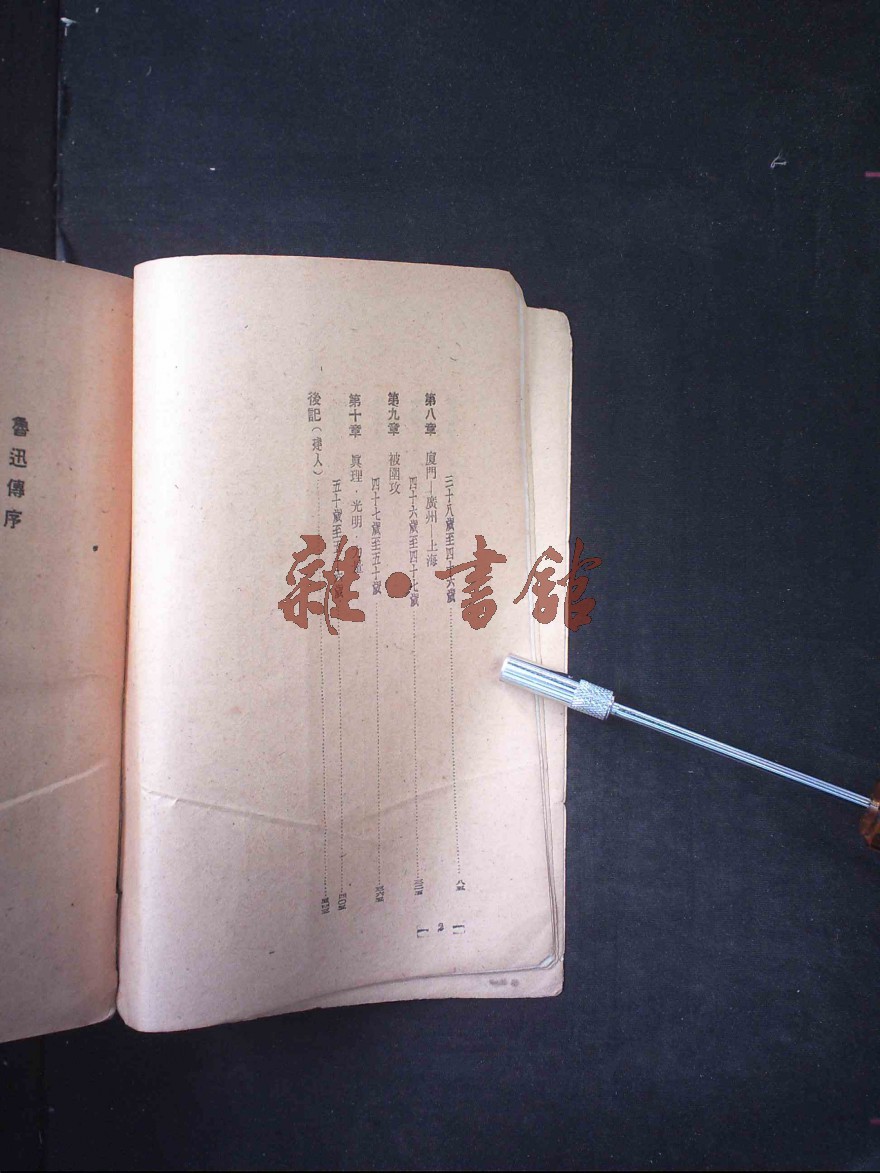 三十八歲至四十六歲
第八章 廈門—廣州—上海
四十六歲至四十七歲
第九章 被圍攻
四十七歲至五十歲
第十章 眞理・光明・
五十歲至五 歲
後記（建人）
【2】
魯迅傳序
雜・書館